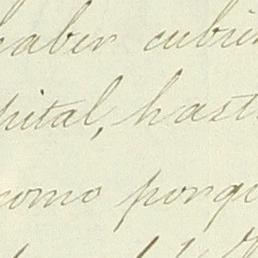 haber cubier
pital, hast
como porqu